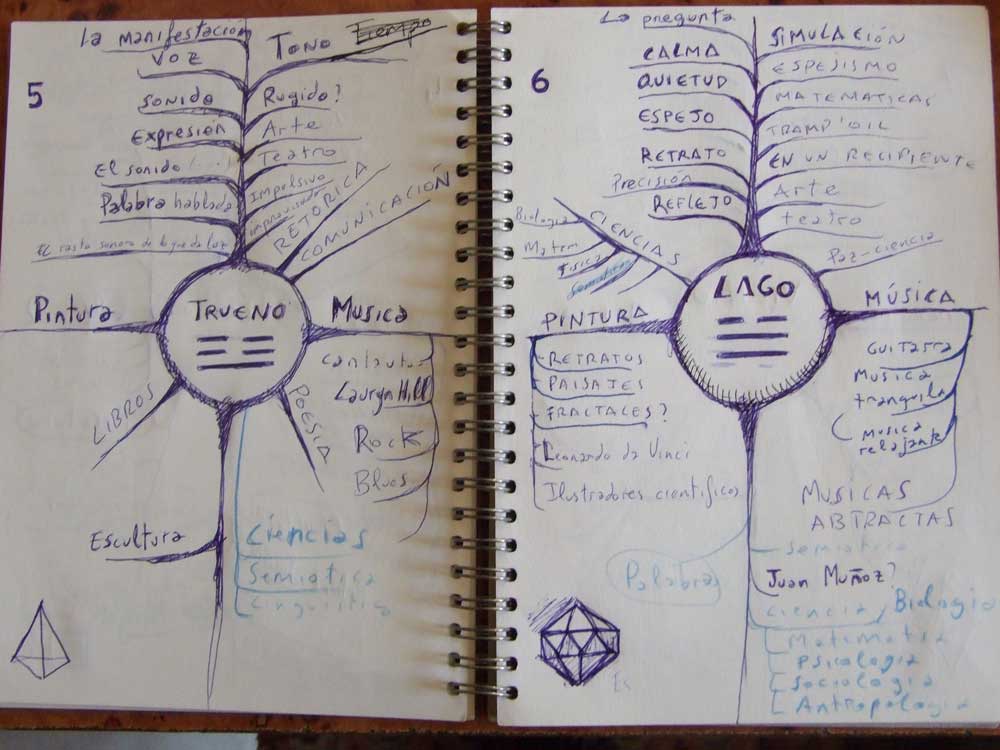 5
La manifestación
VOZ
SONIDO
Expresión
El sonido (...)
Palabra hablada
TONO
Tiempo
Rugido?
Arte
Teatro
Impulsivo
improvisado
RETÓRICA
COMUNICACIÓN
Pintura
TRUENO
Musica
cantautor
Lauryn Hill
Rock
Blues
LIBROS
POESIA
Escultura
Ciencias
Semiotica
Linguistica
6
La pregunta
CALMA
QUIETUD
ESPEJO
RETRATO
Precisión
REFLEJO
SIMULACIÓN
ESPEJISMO
MATEMATICAS
TRAMP'OIL
EN UN RECIPIENTE
Arte
teatro
Paz-ciencia
CIENCIAS
Biologia
Matem
Fisica
Semiotica
PINTURA
LAGO
MÚSICA
RETRATOS
PAISAJES
FRACTALES?
Leonardo da Vinci
Ilustradores cientificos
GUITARRA
MUSICA
tranquila
MUSICA
relajante
MUSICAS
ABTRACTAS
Palabras
Semiotica
Juan Muñoz?
Ciencia Biologia
Psicologia
Sociologia
Antropologia
Es